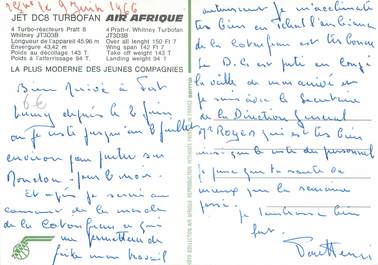 reçu le 9 Juin 1966
JET DC8 TURBOFAN AIR AFRIQUE
4 Turbo-réacteurs Pratt &
Whitney JT3D3B
Longueur de l'appareil 45,96 m
Envergure 43,42 m
Poids au décollage 143 T.
Poids à l'atterrissage 94 T.
4 Pratt-r. Whitney Turbofan
JT3D3B
Over all lenght 150 Ft 7
Wing span 142 Ft 7
Take off weight 143 T.
Landing weight 94 T.
LA PLUS MODERNE DES JEUNES COMPAGNIES
Bien arrivé à Fort
Lamy depuis le 2 juin
où je reste jusqu'au 8 juillet
environ pour partir sur
Moundou pour le mois
Et après je serai au
courant de la marche
de la Cotonfran ce qui
me permettra de
faire mon travail
autrement je m'acclimate
très bien en 
de la Cotonfran est très bonne
le D.G. est parti en congé
la veille de mon arrivée et
je suis avec le Secrétaire
de la Direction General
Mr Royer qui est très bien
ainsi que le reste du personnel
je pense que ta santé va
mieux que la semaine
Je t'embrasse bien
fort
Paul Henri